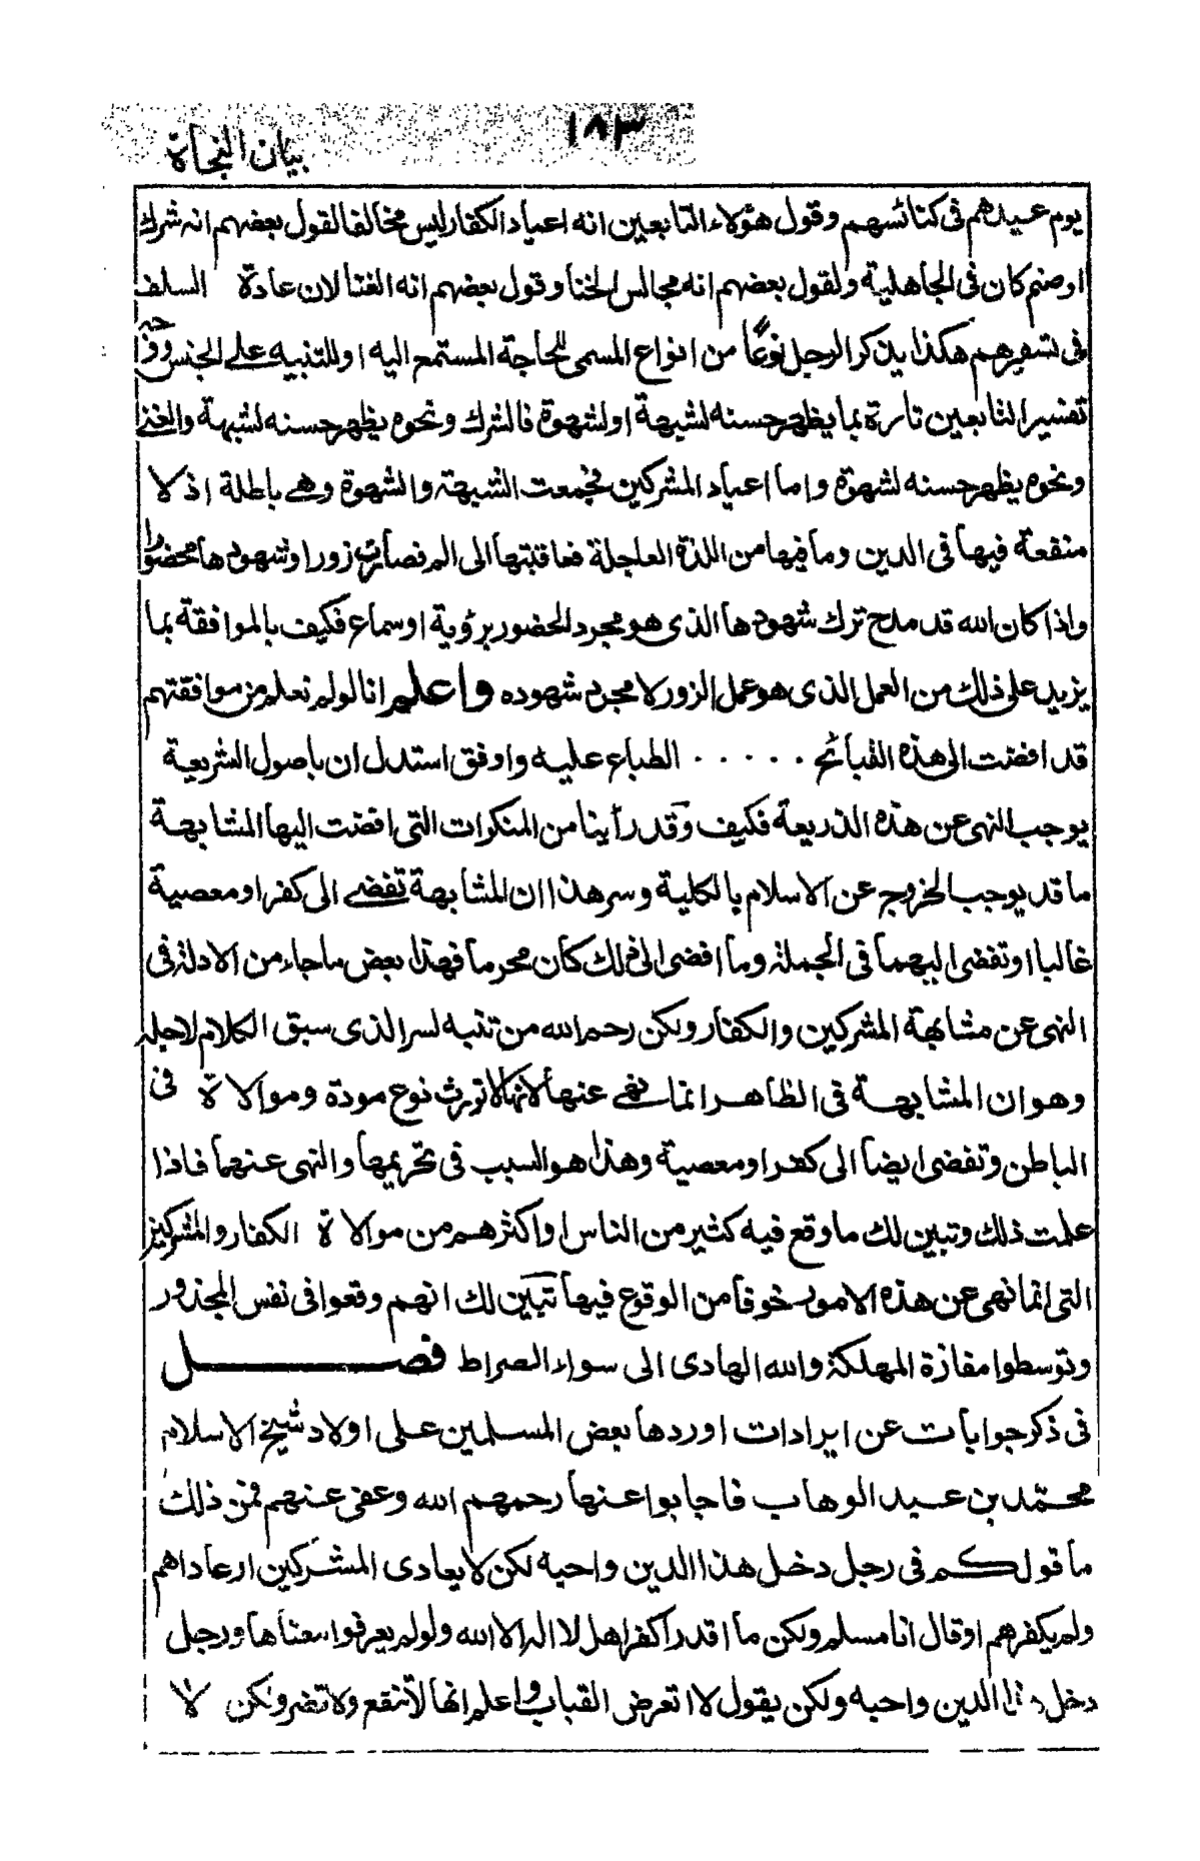 ١٨٣
بيان النجاة
يوم عيدهم فى كنائسهم وقول هؤلاء التابعين انه اعياد الكفار ليس مخالفا لقول بعضهم انه شرك
او صنم كان فى الجاهلية ولقول بعضهم انه مجالس الخنا وقول بعضهم انه الغنا لان عادة السلف
فى تفسيرهم هكذا يذكر الرجل نوعًا من انواع المسمى للحاجة المستمع اليه او للتنبيه على الجنس
تفسير التابعين تارة بما يظهر حسنه لشبهة او لشهوة فالشرك ونحوه يظهر حسنه لشبهة والغنى
ونحوه يظهر حسنه لشهوة واما اعياد المشركين فجمعت الشبهة والشهوة وهى باطلة اذ لا
منفعة فيها فى الدين وما فيها من اللذة العاجلة فعاقبتها الى الم فصارت زورا وشهودها حضورا
واذا كان الله قد مدح ترك شهودها الذى هو مجرد الحضور برؤية او سماع فكيف بالموافقة بما
يزيد على ذلك من العمل الذى هو عمل الزور لا مجرد شهوده واعلم انا لو لم نعلم من موافقتهم
قد افضت الى هذه القبائح ..... الطباع عليه واوفق استدلال ان باصول الشريعة
يوجب النهى عن هذه الذريعة فكيف وقد رأينا من المنكرات التى افضت اليها المشابهة
ما قد يوجب الخروج عن الاسلام بالكلية وسر هذا ان المشابهة تفضى الى كفر او معصية
غالبا او تفضى اليهما فى الجملة وما افضى الى ذلك كان محرما فهذا بعض ماجاء من الادلة فى
النهى عن مشابهة المشركين والكفار ولكن رحم الله من تنبه لسر الذى سبق الكلام لاجله
وهو ان المشابهة فى الظاهر انما نهى عنها لانها تورث نوع مودة وموالاة فى
الباطن وتفضى ايضا الى كفر او معصية وهذا هو السبب فى تحريمها والنهى عنهما فاذا
علمت ذلك وتبين لك ما وقع فيه كثير من الناس او اكثرهم من موالاة الكفار والمشركين
التى انما نهى عن هذه الامور خوفا من الوقوع فيها تبين لك انهم وقعوا فى نفس المحذور
وتوسطوا مفازة المهلكة والله الهادى الى سواء الصراط فصل
فى ذكر جوابات عن ايرادات اوردها بعض المسلمين على اولاد شيخ الاسلام
محمّد بن عبد الوهاب فاجابوا عنها رحمهم الله وعفى عنهم فمن ذلك
ما قولكم فى رجل دخل هذا الدين واحبه لكن لا يعادى المشركين او عاداهم
ولم يكفرهم او قال انا مسلم ولكن ما اقدر اكفر اهل لا اله الا الله ولو لم يعرفوا معناها ورجل
دخل هذا الدين واحبه ولكن يقول لا اتعرض القباب واعلم انها لا تنفع ولا تضر ولكن لا